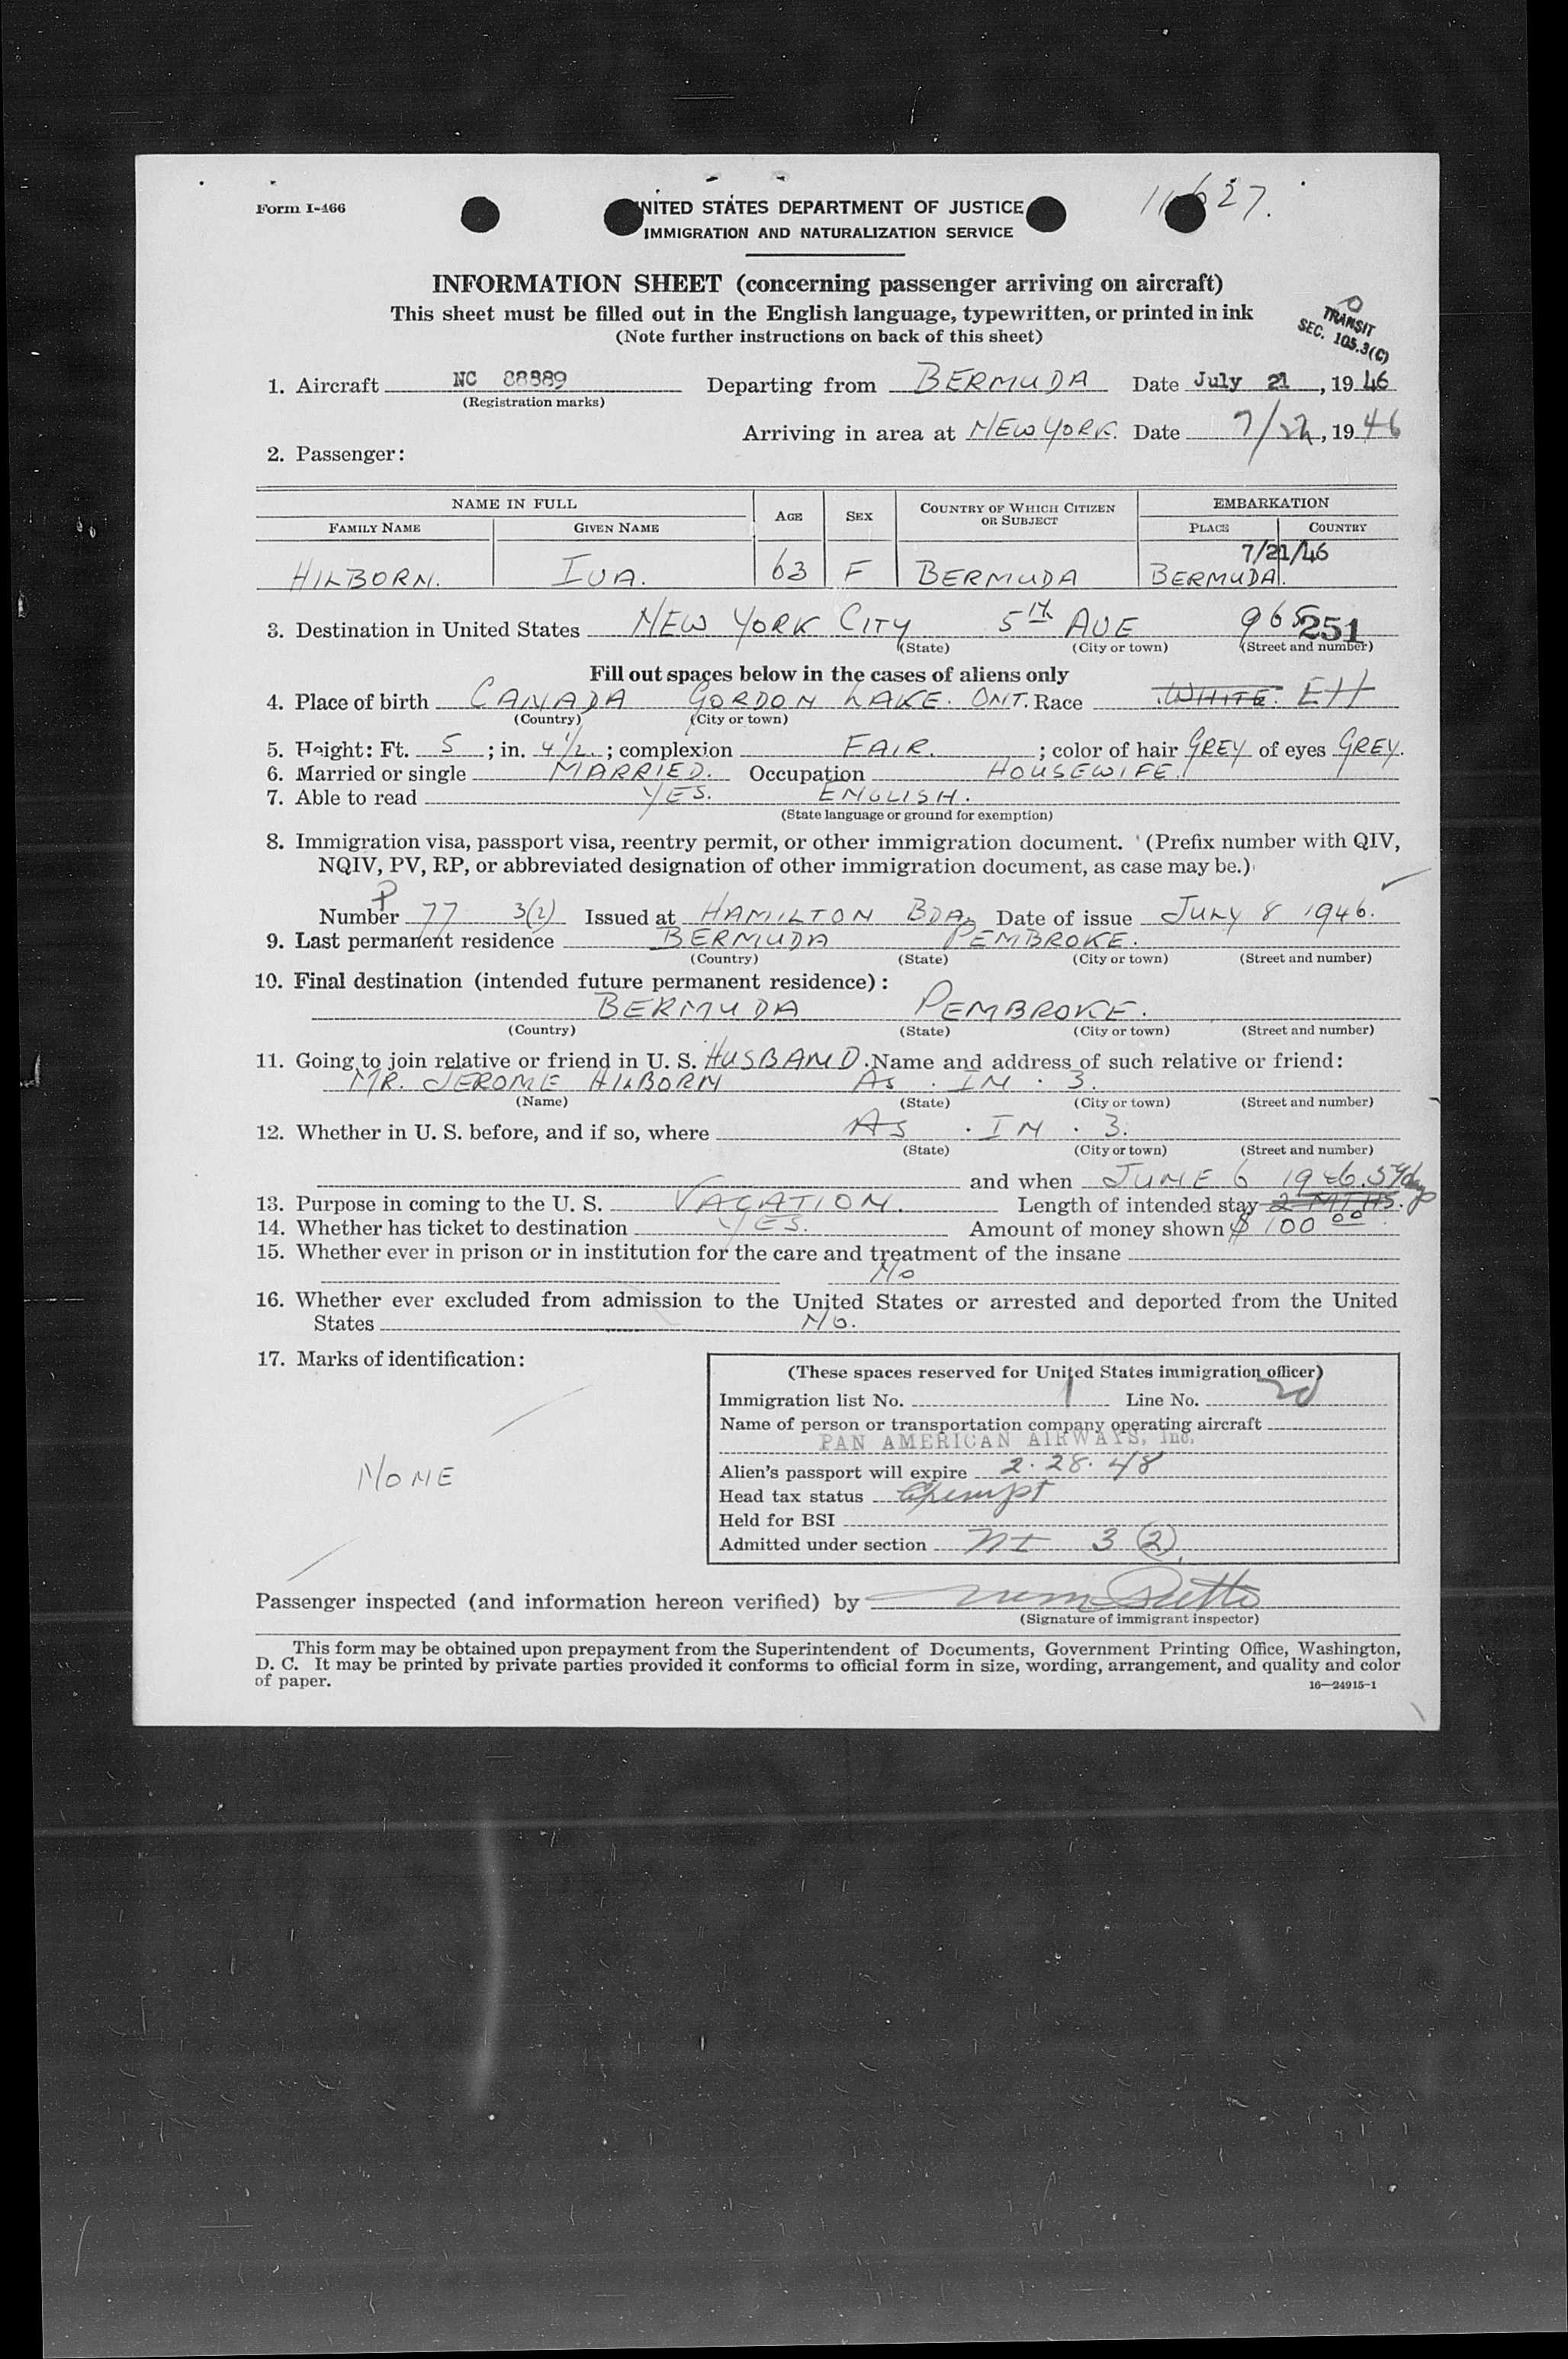 Form I-466
UNITED STATES DEPARTMENT OF JUSTICE
IMMIGRATION AND NATURALIZATION SERVICE
INFORMATION SHEET (concerning passenger arriving on aircraft)
This sheet must be filled out in the English language, typewritten, or printed in ink
(Note further instructions on back of this sheet)
TRANSIT
SEC. 105.3(C)
1. Aircraft NC 88889 Departing from BERMUDA Date July 21, 1946
(Registration marks)
Arriving in area at NEW YORK. Date , 1946
2. Passenger:
NAME IN FULL AGE SEX COUNTRY OF WHICH CITIZEN OR SUBJECT EMBARKATION
FAMILY NAME GIVEN NAME PLACE COUNTRY
7/21/46
HILBORN. IVA. 63 F BERMUDA BERMUDA.
3. Destination in United States NEW YORK CITY 5TH AVE 965 251
(State) (City or town) (Street and number)
Fill out spaces below in the cases of aliens only
4. Place of birth CANADA GORDON LAKE. ONT. Race WHITE. EH
(Country) (City or town)
5. Height: Ft. 5; in. 4 1/2.; complexion FAIR.; color of hair GREY of eyes GREY.
6. Married or single MARRIED. Occupation HOUSEWIFE.
7. Able to read YES. ENGLISH.
(State language or ground for exemption)
8. Immigration visa, passport visa, reentry permit, or other immigration document. (Prefix number with QIV,
NQIV, PV, RP, or abbreviated designation of other immigration document, as case may be.)
P
Number 77 3(2) Issued at HAMILTON BDA Date of issue JULY 8 1946.
9. Last permanent residence BERMUDA PEMBROKE.
(Country) (State) (City or town) (Street and number)
10. Final destination (intended future permanent residence):
BERMUDA PEMBROKE.
(Country) (State) (City or town) (Street and number)
11. Going to join relative or friend in U. S. HUSBAND. Name and address of such relative or friend:
MR. JEROME HILBORN AS. IN. 3.
(Name) (State) (City or town) (Street and number)
12. Whether in U. S. before, and if so, where AS. IN. 3.
(State) (City or town) (Street and number)
and when JUNE 6 1946. days
13. Purpose in coming to the U. S. VACATION. Length of intended stay 2 MTHS.
14. Whether has ticket to destination YES. Amount of money shown $100 00
15. Whether ever in prison or in institution for the care and treatment of the insane
No
16. Whether ever excluded from admission to the United States or arrested and deported from the United
States NO.
17. Marks of identification:
NONE
(These spaces reserved for United States immigration officer)
Immigration list No. 1 Line No.
Name of person or transportation company operating aircraft
PAN AMERICAN AIRWAYS, Inc.
Alien's passport will expire 2. 28. 48
Head tax status Exempt
Held for BSI
Admitted under section NI 3 (2)
Passenger inspected (and information hereon verified) by
(Signature of immigrant inspector)
This form may be obtained upon prepayment from the Superintendent of Documents, Government Printing Office, Washington,
D. C. It may be printed by private parties provided it conforms to official form in size, wording, arrangement, and quality and color
of paper.
16—24915-1